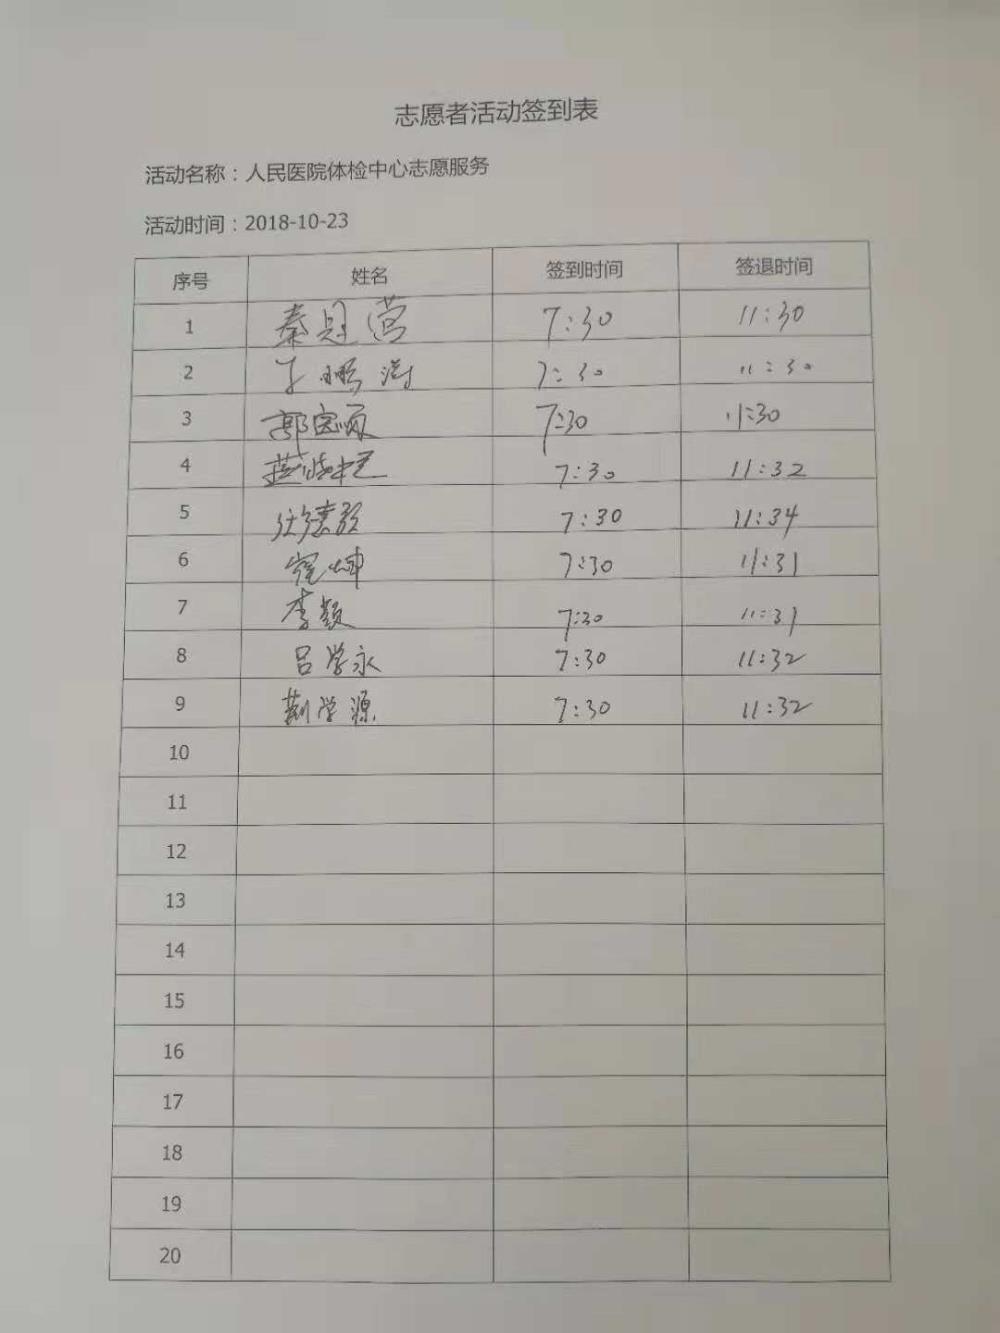 志愿者活动签到表
活动名称：人民医院体检中心志愿服务
活动时间：2018-10-23
序号 姓名 签到时间 签退时间
1 秦冠营 7:30 11:30
2 鹏涛 7:30 11:30
3 郭 7:30 11:30
4 7:30 11:32
5 7:30 11:34
6 坤 7:30 11:31
7 李颖 7:30 11:31
8 吕学永 7:30 11:32
9 荆学源 7:30 11:32
10
11
12
13
14
15
16
17
18
19
20